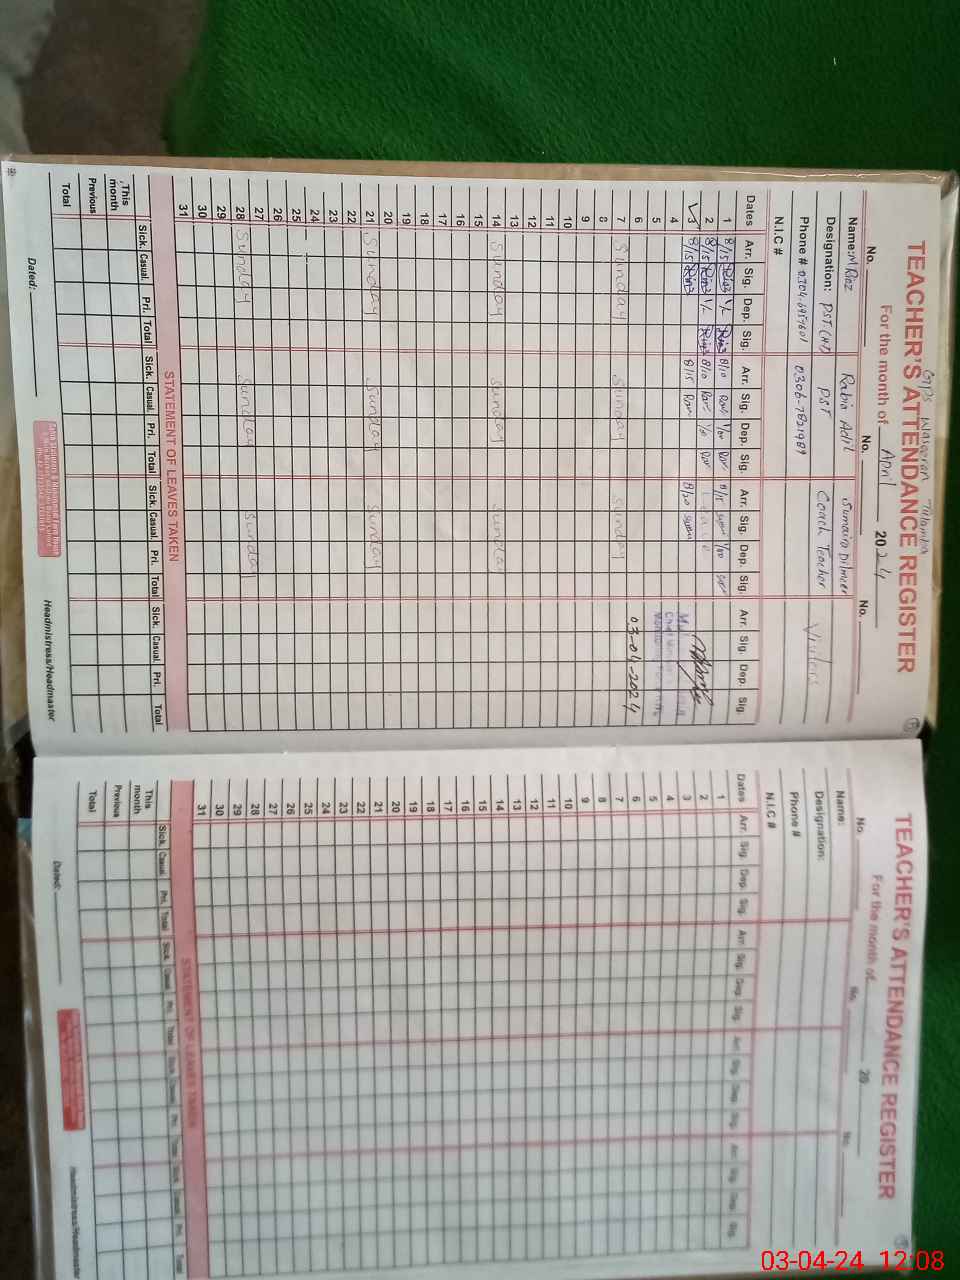 GPS Waseeran Tulamba
TEACHER'S ATTENDANCE REGISTER
For the month of April 2024
No. No. No.
Name: M Riaz Rabia Adil Sumaira Dilawer
Designation: PST.(HT) PST Coach Teacher Visitors
Phone # 0306-7821989
N.I.C #
Dates Arr. Sig. Dep. Sig. Arr. Sig. Dep. Sig. Arr. Sig. Dep. Sig. Arr. Sig. Dep. Sig.
1 8/15 8/10 1/00 8/15 1/00
2 8/15 8/10 1/00 Leave
3 8/15 8/15 8/20
4
5
6 03-04-2024
7 Sunday Sunday Sunday
8
9
10
11
12
13
14 Sunday Sunday Sunday
15
16
17
18
19
20
21 Sunday Sunday Sunday
22
23
24
25
26
27
28 Sunday Sunday Sunday
29
30
31
STATEMENT OF LEAVES TAKEN
Sick. Casual. Pri. Total Sick. Casual. Pri. Total Sick. Casual. Pri. Total Sick. Casual. Pri. Total
This month
Previous
Total
Dated: Headmistress/Headmaster
TEACHER'S ATTENDANCE REGISTER
For the month of 20
No. No. No.
Name:
Designation:
Phone #
N.I.C #
Dates Arr. Sig. Dep. Sig. Arr. Sig. Dep. Sig. Arr. Sig. Dep. Sig. Arr. Sig. Dep. Sig.
1
2
3
4
5
6
7
8
9
10
11
12
13
14
15
16
17
18
19
20
21
22
23
24
25
26
27
28
29
30
31
STATEMENT OF LEAVES TAKEN
Sick. Casual. Pri. Total Sick. Casual. Pri. Total Sick. Casual. Pri. Total Sick. Casual. Pri. Total
This month
Previous
Total
Dated: Headmistress/Headmaster
03-04-24 12:08